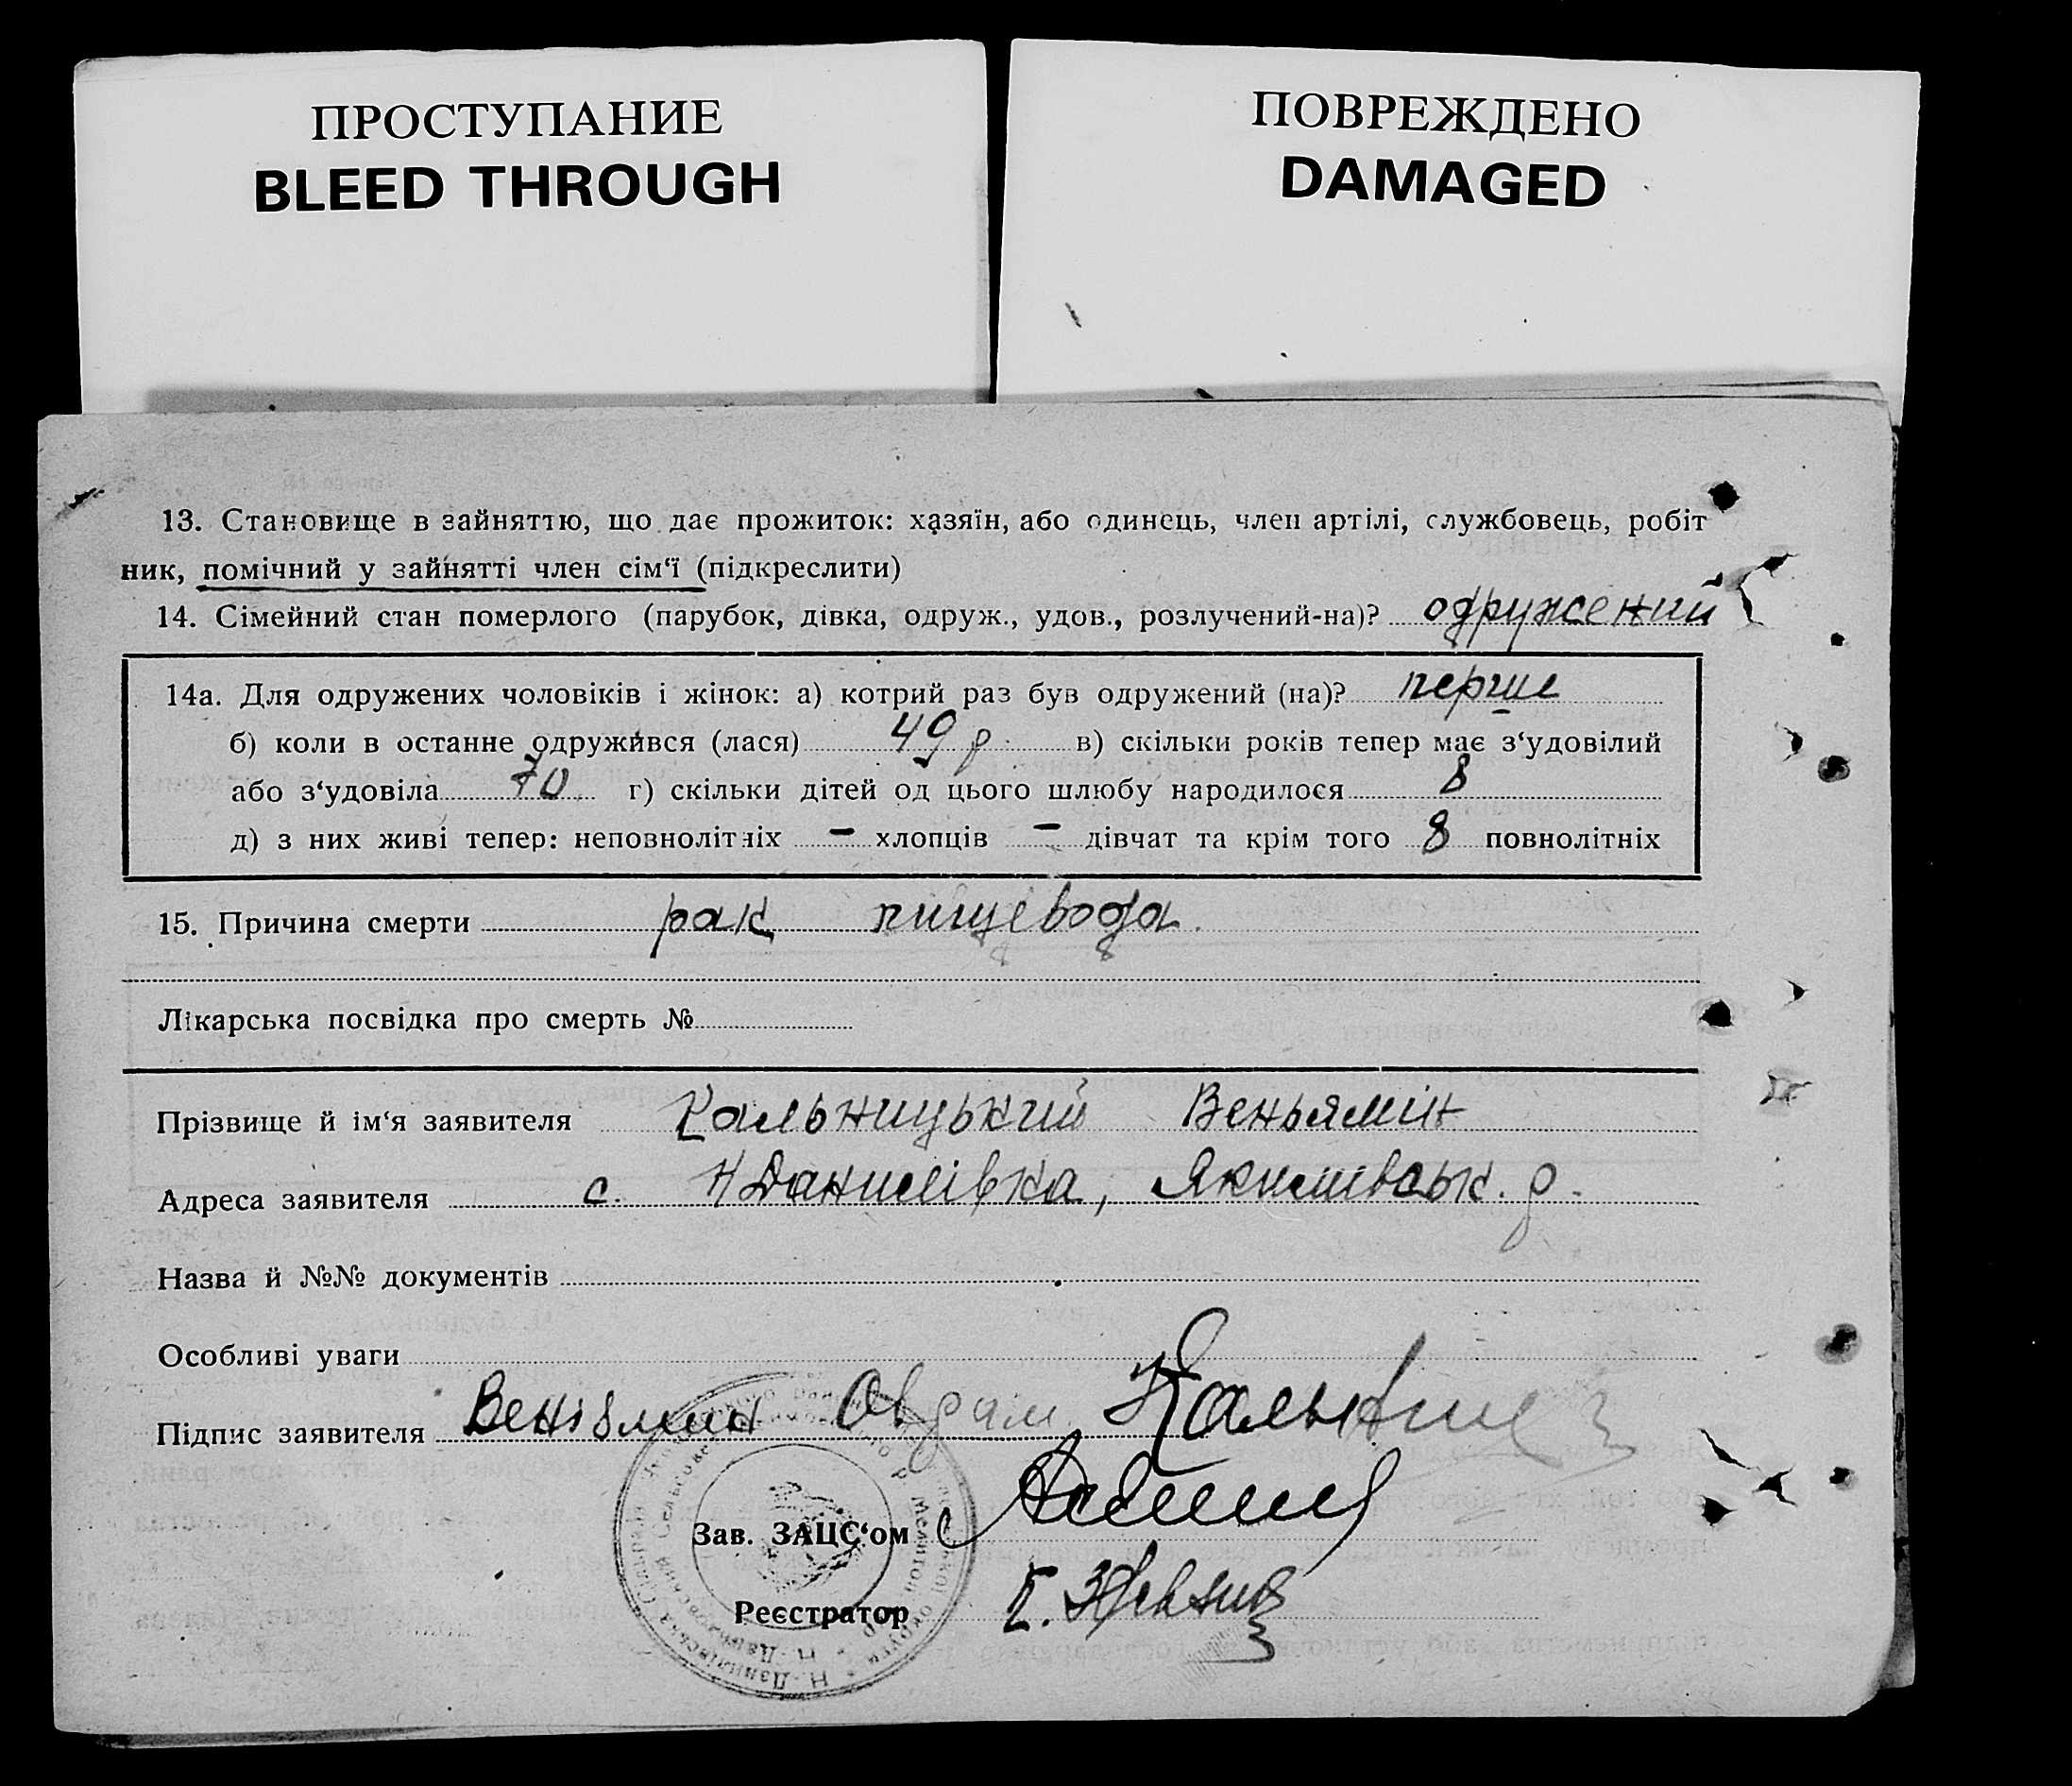 ПРОСТУПАНИЕ
BLEED THROUGH
ПОВРЕЖДЕНО
DAMAGED
13. Становище в зайняттю, що дає прожиток: хазяїн, або одинець, член артілі, службовець, робіт
ник, помічний у зайнятті член сім‘ї (підкреслити)
14. Сімейний стан померлого (парубок, дівка, одруж., удов., розлучений-на)? одружений
14а. Для одружених чоловіків і жінок: а) котрий раз був одружений (на)? перше
б) коли в останне одружився (лася) 49 р. в) скільки років тепер має з‘удовілий
або з‘удовіла 70 г) скільки дітей од цього шлюбу народилося 8
д) з них живі тепер: неповнолітніх – хлопців – дівчат та крім того 8 повнолітніх
15. Причина смерти рак пищевода
Лікарська посвідка про смерть №
Прізвище й ім‘я заявителя Кальницький Веньямін
Адреса заявителя с. Н Данилівка, Якимівськ. р.
Назва й №№ документів
Особливі уваги
Підпис заявителя
Зав. ЗАЦС‘ом
Реєстратор